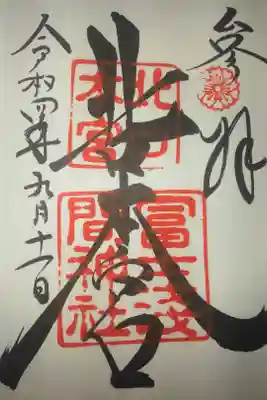 参拝
北口本宮
北口
本宮
冨士浅
間神社
令和四年九月十一日